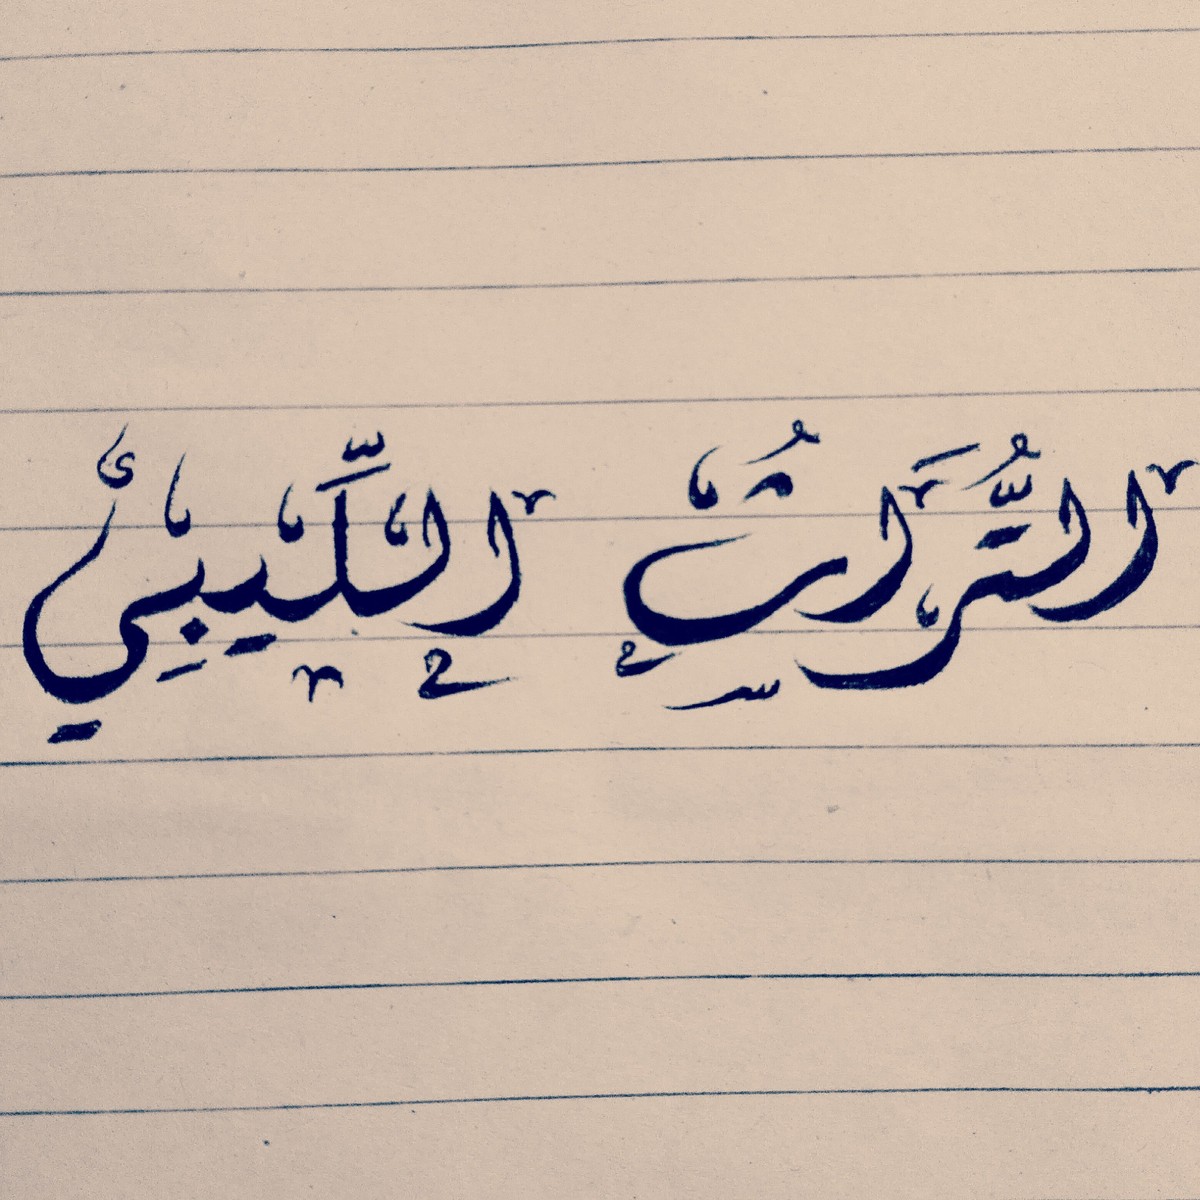 التُّرَاثُ اللِّيبِي